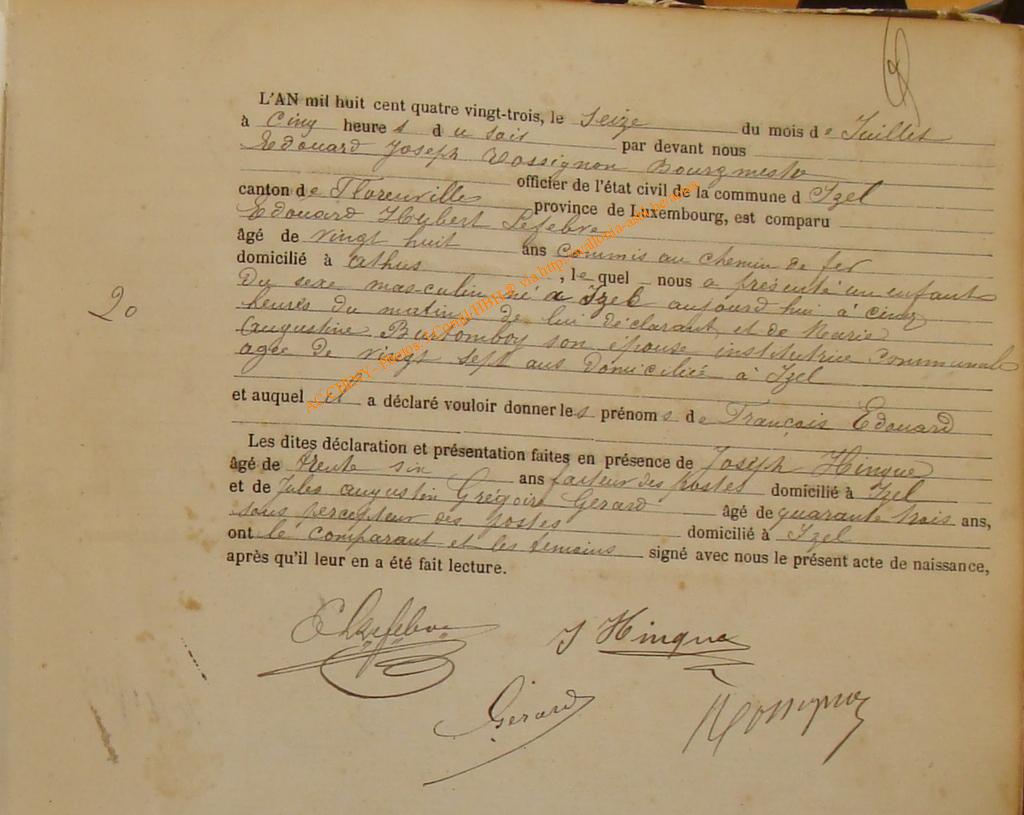 L'AN mil huit cent quatre vingt-trois, le Seize du mois de Juillet
à cinq heures du soir par devant nous
Edouard Joseph Rossignon Bourgmestre
officier de l'état civil de la commune d Izel
canton de Florenville province de Luxembourg, est comparu
Edouard Hubert Lefebvre
âgé de vingt huit ans commis au chemin de fer
domicilié à athus, lequel nous a présenté un enfant
du sexe masculin né à Izel aujourd'hui à cinq
heures du matin, de lui déclarant et de Marie
augustine son épouse institutrice communale
agée de vingt sept ans domiciliée à Izel
et auquel il a déclaré vouloir donner les prénoms de François Edouard
Les dites déclaration et présentation faites en présence de Joseph Hinque
âgé de trente six ans facteur des postes domicilié à Izel
et de Jules augustin Grégoire Gerard âgé de quarante trois ans,
sous percepteur des postes domicilié à Izel
ont le comparant et les témoins signé avec nous le présent acte de naissance,
après qu'il leur en a été fait lecture.
20
E Lefebvre
J Hinque
Gérard
Rossignon